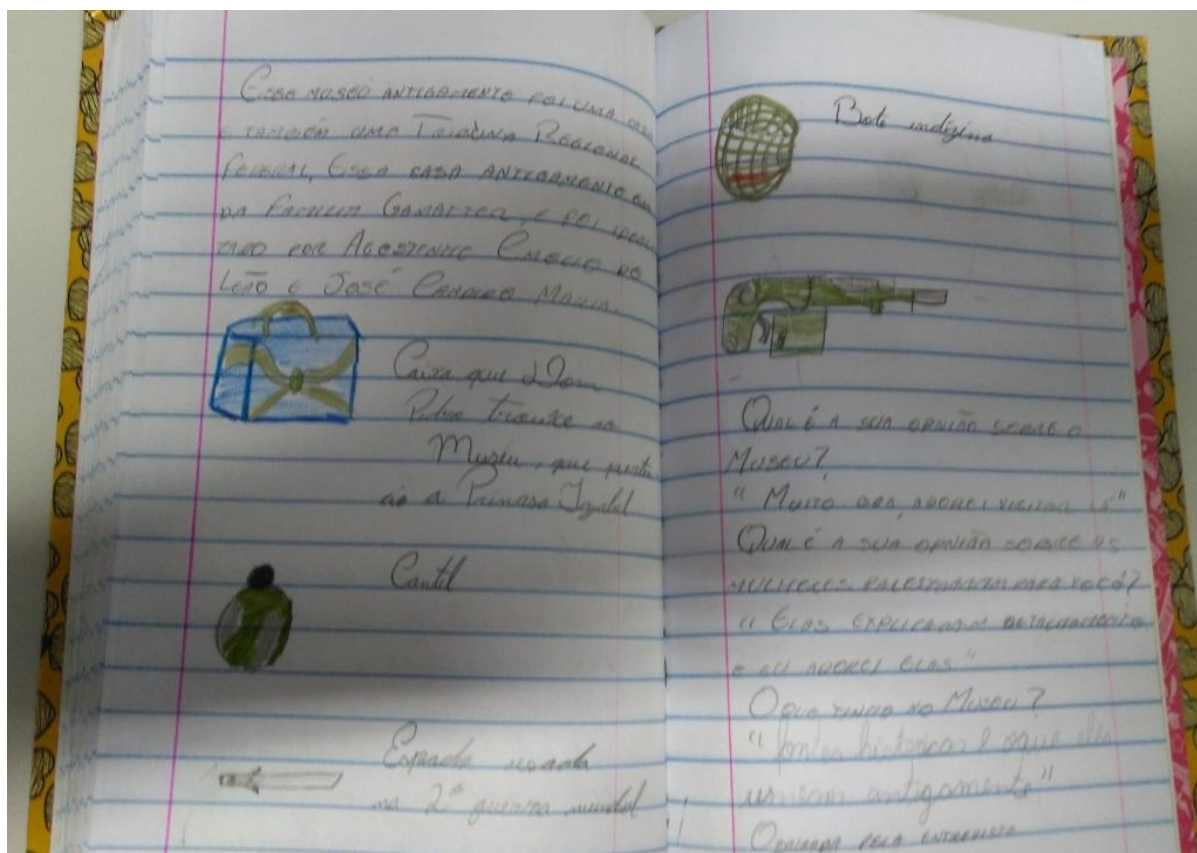 Esse museo antigamente foi uma casa
e também uma Tribuna Regional
Federal, Essa casa antigamente era
da Familia
tado por Agostinho Ermelio de
Leão e José Candido Maria.
Caixa que Dom
Pedro trouxe ao
Museu, que perten
ao a Princesa Izabel
Cantil
Espada usada
na 2ª guerra mundial
Bote indigina
Qual é a sua opnião sobre o
Museu?
"Muito boa, adorei visitar lá"
Qual é a sua opnião sobre as
mulheres palestraram para você?
"Elas explicaram detalhadamente
e eu adorei elas"
O que tinha no Museu?
"fontes historicas e oque eles
usavam antigamente"
Obrigada pela entrevista